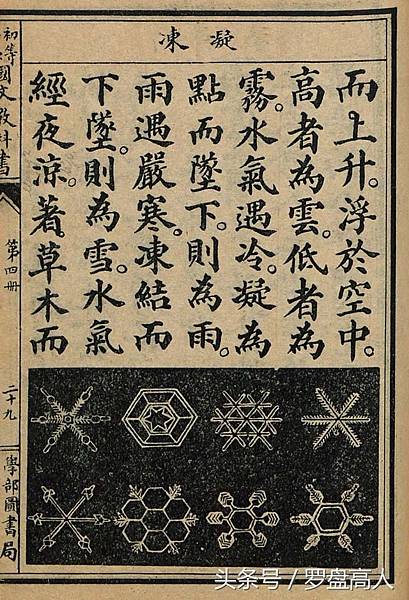 凝凍
而上升。浮於空中。
高者為雲。低者為
霧。水氣遇冷。凝為
點而墜下。則為雨。
雨遇嚴寒。凍結而
下墜。則為雪。水氣
經夜涼。著草木而
初等國文教科書
第四册
二十九
學部圖書局
头条号 / 罗盘高人